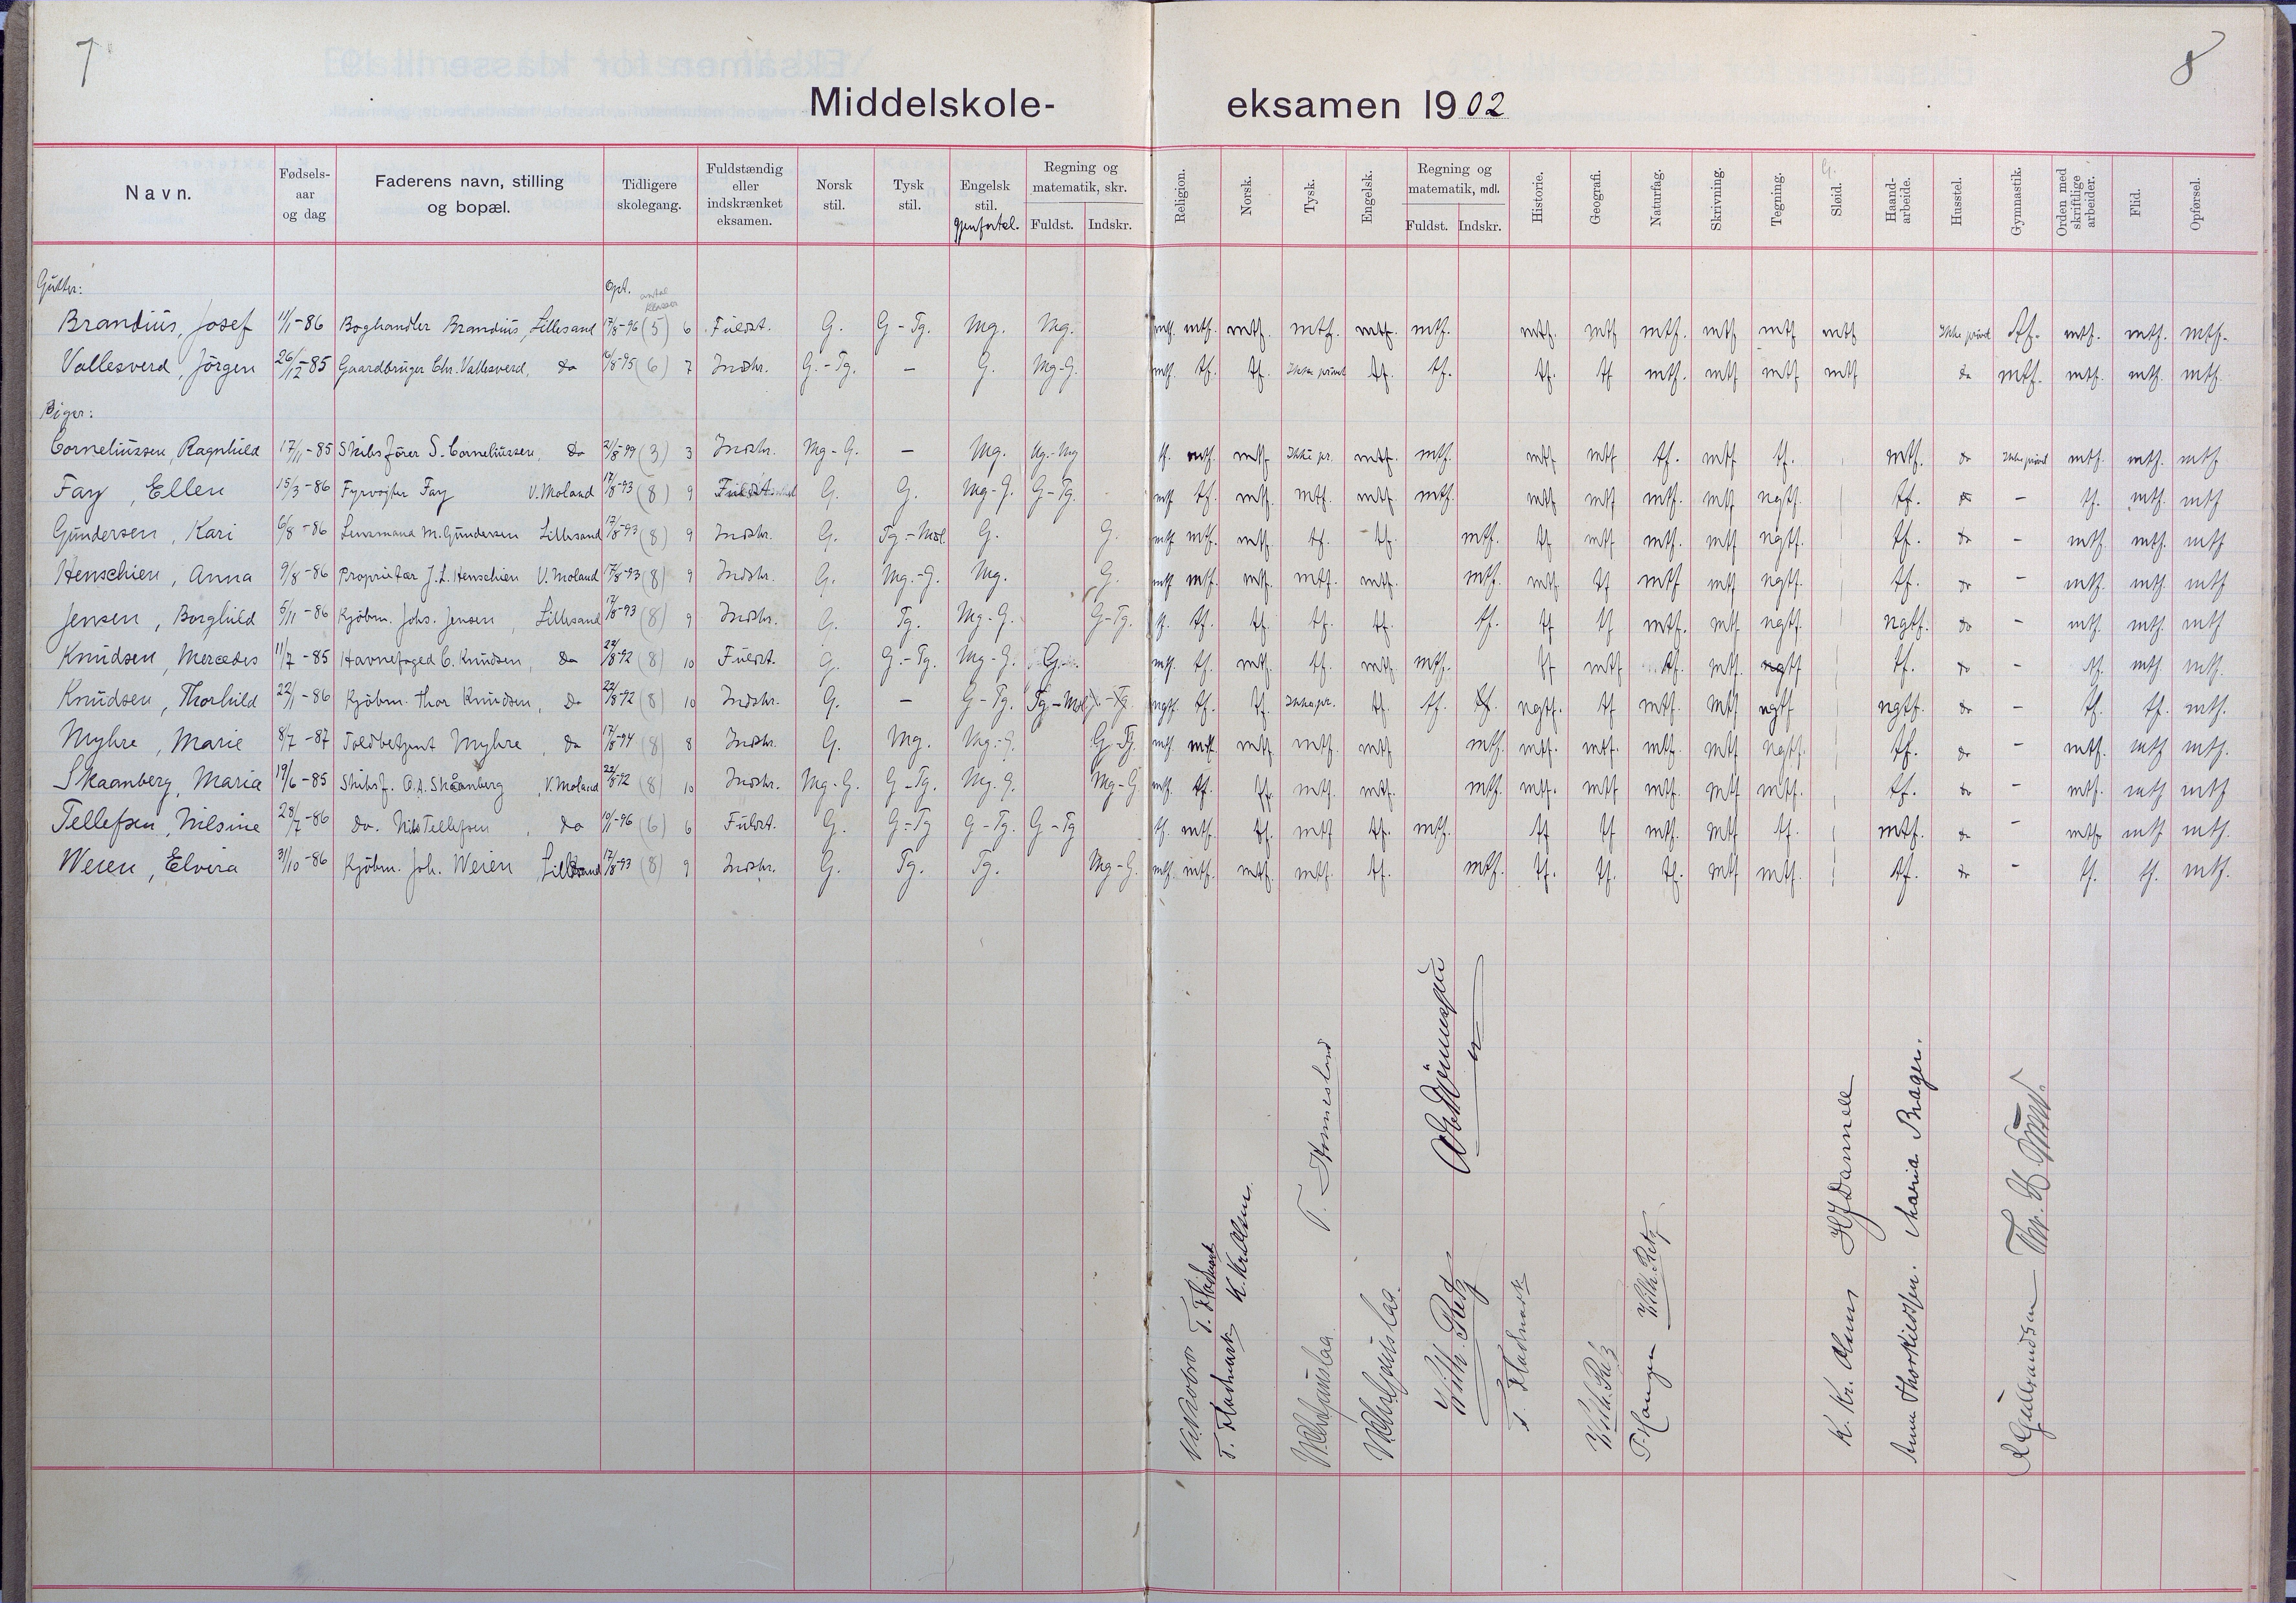 7
8
Middelskole-eksamen 1902
Navn. Fødsels-aar og dag Faderens navn, stilling og bopæl. Tidligere skolegang. Fuldstændig eller indskrænket eksamen. Norsk stil. Tysk stil. Engelsk stil. gjenfortel. Regning og matematik, skr. Fuldst. Indskr. Religion. Norsk. Tysk. Engelsk. Regning og matematik, mdl. Fuldst. Indskr. Historie. Geografi. Naturfag. Skrivning. Tegning. Sløid. Haand-arbeide. Husstel. Gymnastik. Orden med skriftlige arbeider. Flid. Opførsel.
Gutter: Opt. antal klasser
Brandius, Josef 11/1-86 Boghandler Brandius, Lillesand 17/8-96 (5) 6 Fuldst. G. G-Tg. Mg. Mg. mtf. mtf. mtf. mtf. mtf. mtf. mtf. mtf mtf. mtf mtf mtf Ikke prövet tf. mtf. mtf. mtf.
Vallesverd, Jörgen 26/12-85 Gaardbruger Chr. Vallesverd, do 16/8-95 (6) 7 Indskr. G.-Tg. - G. Mg-G. mtf. tf. tf. Ikke prövet tf. tf. tf. tf mtf. mtf mtf mtf do mtf. mtf. mtf. mtf.
Piger:
Corneliussen, Ragnhild 17/11-85 Skibsförer S. Corneliussen, do 21/8-99 (3) 3 Indskr. Mg-G. - Mg. Ug.-Mg tf. mtf. mtf Ikke pr. mtf. mtf. mtf mtf tf. mtf tf. mtf. do Ikke prövet mtf. mtf. mtf
Fay, Ellen 15/3-86 Fyrvogter Fay V. Moland 17/8-93 (8) 9 Fuldst. G. G. Mg-G. G-Tg. mtf tf. mtf. mtf. mtf. mtf. mtf mtf mtf. mtf ngtf. tf. do - tf. mtf. mtf
Gundersen, Kari 6/8-86 Lensmand M. Gundersen Lillesand 17/8-93 (8) 9 Indskr. G. Tg.-Mdl. G. G. mtf mtf. mtf. tf. tf. mtf. tf mtf mtf. mtf ngtf. tf. do - mtf. mtf. mtf
Henschien, Anna 9/8-86 Proprietær J. L. Henschien V. Moland 17/8-93 (8) 9 Indskr. G. Mg.-G. Mg. G. mtf mtf. mtf. mtf. mtf. mtf. mtf tf mtf mtf ngtf. tf. do - mtf. mtf mtf
Jensen, Borghild 5/11-86 Kjöbm. Johs. Jensen, Lillesand 17/8-93 (8) 9 Indskr. G. Tg. Mg-G. G-Tg. tf. tf. tf. tf. tf. tf. tf tf mtf. mtf ngtf. ngtf. do - mtf. mtf. mtf
Knudsen, Mercedes 11/7-85 Havnefoged C. Knudsen, do 22/8-92 (8) 10 Fuldst. G. G.-Tg. Mg-G. G. mtf. tf. mtf. tf. mtf. mtf. tf mtf tf. mtf. ngtf tf. do - tf. mtf mtf.
Knudsen, Thorhild 22/1-86 Kjöbm. Thor Knudsen, do 22/8-92 (8) 10 Indskr. G. - G-Tg. Tg.-Mdl. -Tg. ngtf. tf. tf. Ikke pr. tf. tf. tf. ngtf. tf mtf. mtf ngtf ngtf. do - tf. tf. mtf.
Myhre, Marie 8/7-87 Toldbetjent Myhre, do 17/8-94 (8) 8 Indskr. G. Mg. Mg.-G. G-Tg. mtf mtf. mtf. mtf. mtf mtf. mtf. mtf. mtf. mtf ngtf. tf. do - mtf. mtf mtf.
Skaanberg, Maria 19/6-85 Skibsf. O. A. Skaanberg, V. Moland 22/8-92 (8) 10 Indskr. Mg-G. G-Tg. Mg-G. Mg-G mtf. tf. tf. mtf. mtf. mtf. mtf. mtf mtf. mtf mtf. tf. do - mtf. mtf mtf
Tellefsen, Nilsine 28/7-86 do. Nils Tellefsen, do 10/1-96 (6) 6 Fuldst. G. G-Tg G-Tg. G-Tg tf. mtf. tf. mtf tf. mtf. tf tf mtf. mtf tf. mtf. do - mtf. mtf mtf.
Weien, Elvira 31/10-86 Kjöbm. Joh. Weien Lillesand 17/8-93 (8) 9 Indskr. G. Tg. Tg. Mg-G. mtf. mtf. mtf. mtf. tf. mtf. tf. tf. tf. mtf mtf. tf. do - tf. tf. mtf.
T. Fladmark
T. Fladmark K. Kr. Olsen
T. Hommesland
Vilh. Retz
T. Fladmark
Vilh. Retz
T. Hangen Vilh. Retz
K. Kr. Olsen H J Dannell
Anna Thorkildsen. Maria Bragen.
R Gullmundsen